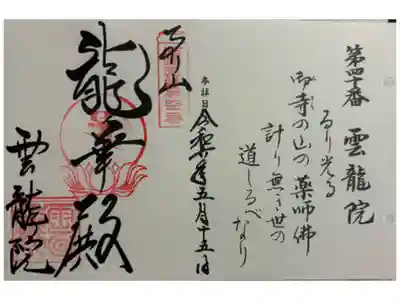 第四十番 雲龍院
るり光る
御寺の山の 薬師佛
計り無き世の
道しるべなり
参拝日 令和 年五月十五日
るり山
龍華殿
雲龍院